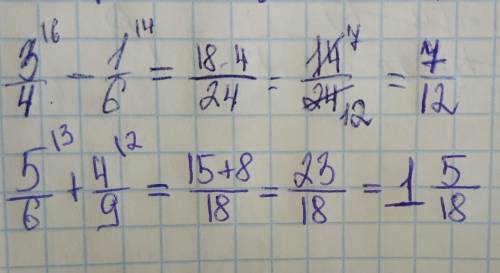 3/4 \6 − 1/6 \4 = 18-4/24 = 14/24 7/12 = 7/12
5/6 \3 + 4/9 \2 = 15+8/18 = 23/18 = 1 5/18